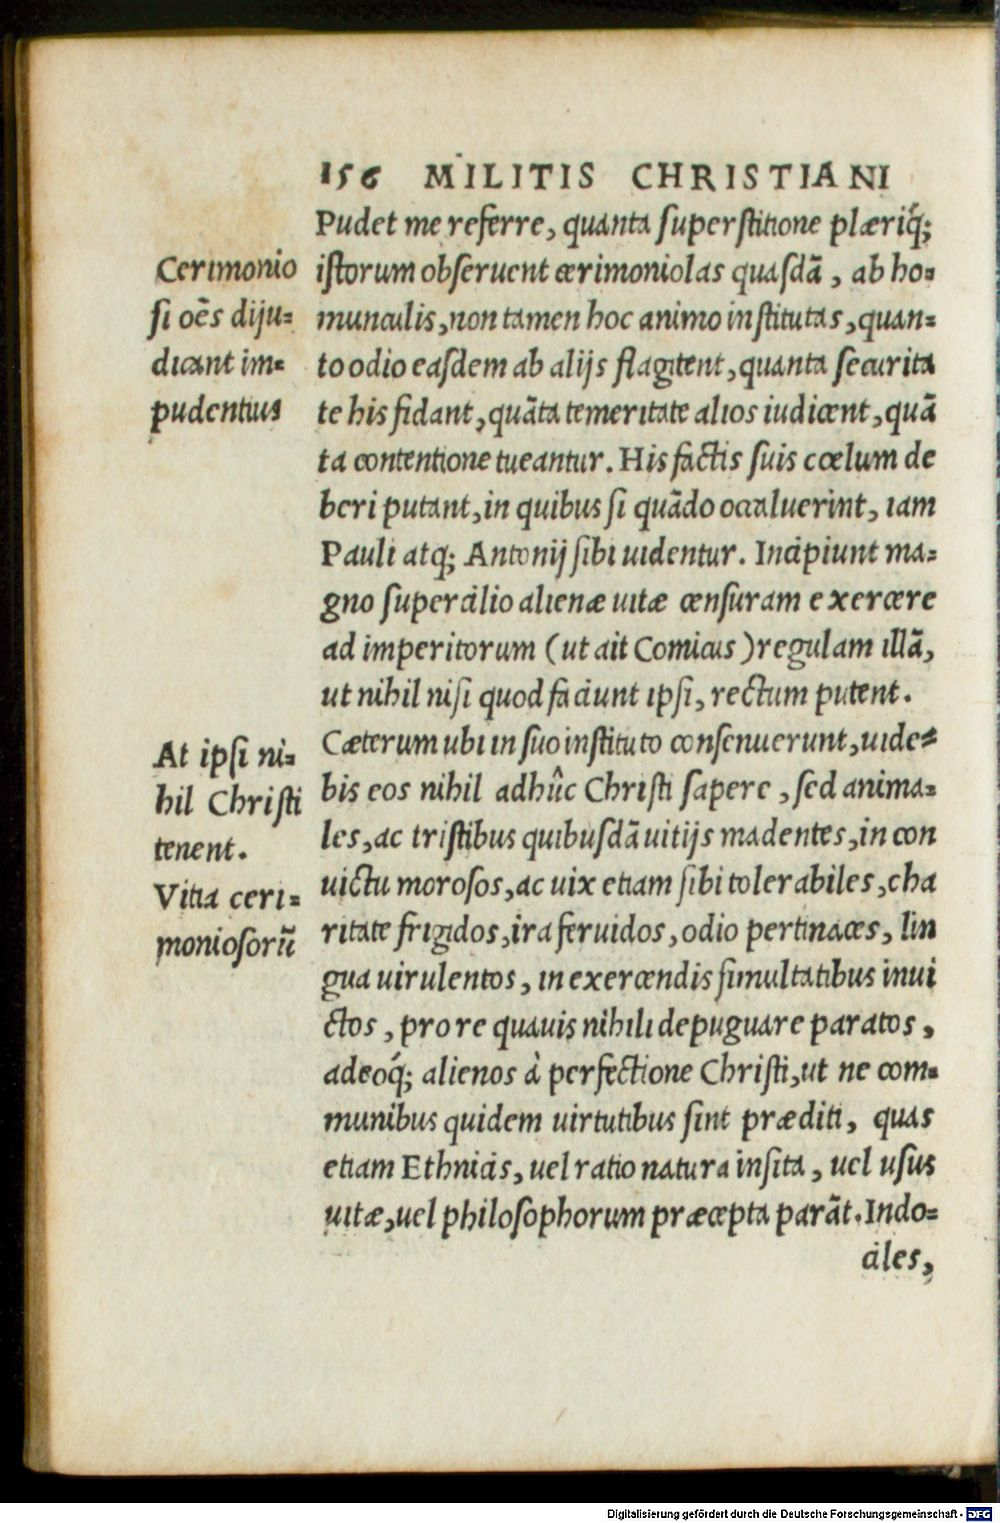 156 MILITIS CHRISTIANI
Pudet me referre, quanta superstitione plæriq́;
istorum obseruent cerimoniolas quasdã, ab ho-
munculis, non tamen hoc animo institutas, quan-
to odio easdem ab alijs flagitent, quanta securita
te his fidant, quãta temeritate alios iudicent, quã
ta contentione tueantur. His factis suis cœlum de
beri putant, in quibus si quãdo occaluerint, iam
Pauli atq; Antonij sibi uidentur. Incipiunt ma-
gno supercilio alienæ uitæ censuram exercere
ad imperitorum (ut ait Comicus) regulam illã,
ut nihil nisi quod faciunt ipsi, rectum putent.
Cæterum ubi in suo instituto consenuerunt, uide-
bis eos nihil adhûc Christi sapere, sed anima-
les, ac tristibus quibusdã uitijs madentes, in con
uictu morosos, ac uix etiam sibi tolerabiles, cha
ritate frigidos, ira feruidos, odio pertinaces, lin
gua uirulentos, in exercendis simultatibus inui
ctos, pro re quauis nihili depuguare paratos,
adeoq́; alienos à perfectione Christi, ut ne com-
munibus quidem uirtutibus sint præditi, quas
etiam Ethnicis, uel ratio natura insita, uel usus
uitæ, uel philosophorum præcepta parãt. Indo-
ciles,
Cerimonio
si oẽs diju-
dicant im-
pudentius
At ipsi ni-
hil Christi
tenent.
Vitia ceri-
moniosorũ
Digitalisierung gefördert durch die Deutsche Forschungsgemeinschaft - DFG